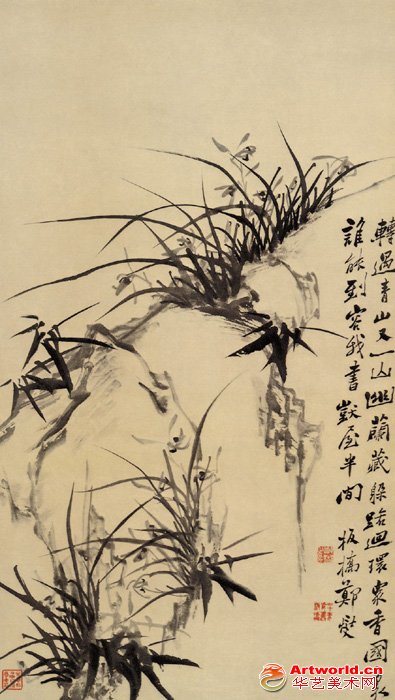 轉過青山又一山幽蘭藏躲路迴環衆香國裏
誰能到容我書獃屋半間 板橋鄭燮
Artworld.cn
华艺美术网